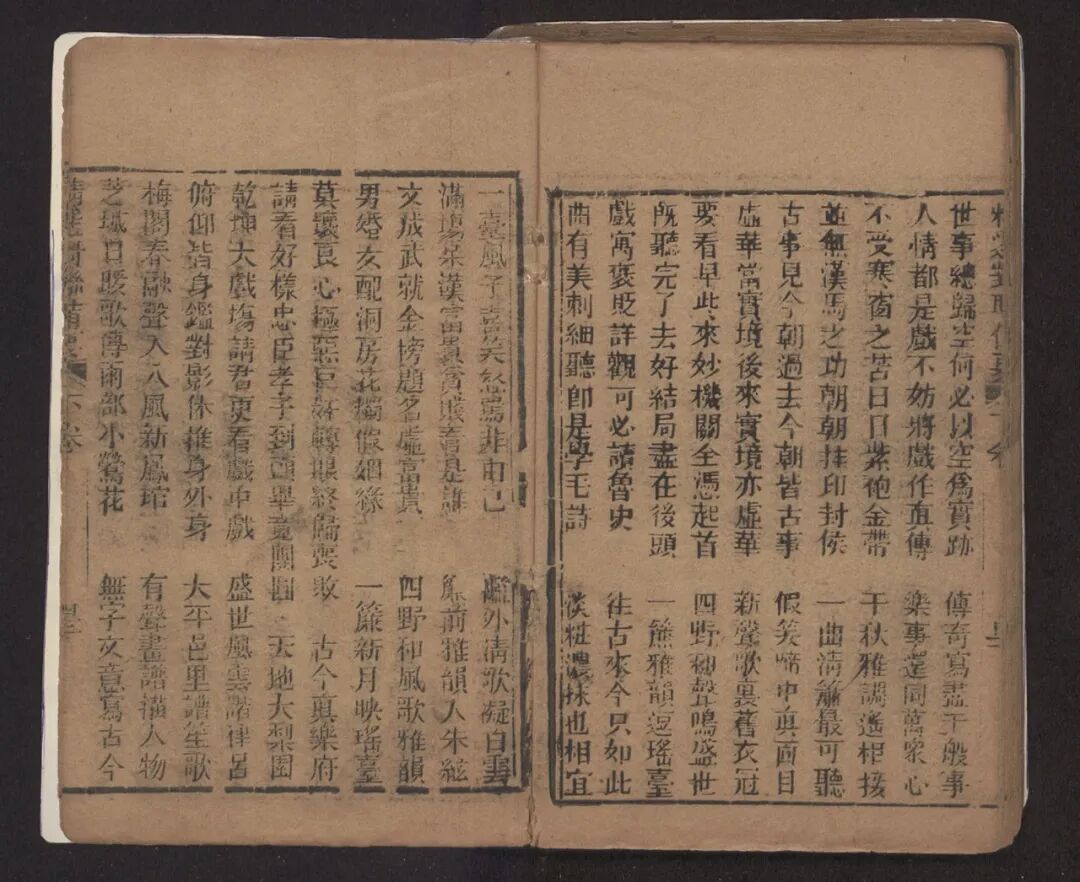 世事總歸空何必以空爲實跡 傳奇寫盡千般事
人情都是戲不妨將戲作真傳 樂事還同萬衆心
不受寒窗之苦日日紫袍金帶 千秋雅調遙相接
並無漢馬之功朝朝挂印封侯 一曲清簫最可聽
古事見今朝過去今朝皆古事 假笑啼中真面目
虛華當實境後來實境亦虛華 新聲歌裏舊衣冠
要看早些來妙機關全憑起首 四野和聲鳴盛世
既聽完了去好結局盡在後頭 一簾雅韻逗瑤臺
戲寓褒貶詳觀可必讀魯史 往古來今只如此
曲有美刺細聽即是學毛詩 淡粧濃抹也相宜
一臺風子喜笑怒罵非由己 檻外清歌凝白雲
滿場呆漢富貴貧賤看是誰 簾前雅韻入朱絃
文成武就金榜題名虛富貴 四野和風歌雅韻
男婚女配洞房花燭假姻緣 一簾新月映瑤臺
莫壞良心極惡巨奸轉眼終歸喪敗 古今真樂府
請看好樣忠臣孝子到頭畢竟團圓 天地大梨園
乾坤大戲場請君更看戲中戲 盛世風雲諧律呂
俯仰皆身鑑對影休推身外身 太平邑里譜笙歌
梅閣春融聲入八風新鳳琯 有聲畫譜描人物
芝城日暖歌傳南部小鶯花 無字文章寫古今
下卷